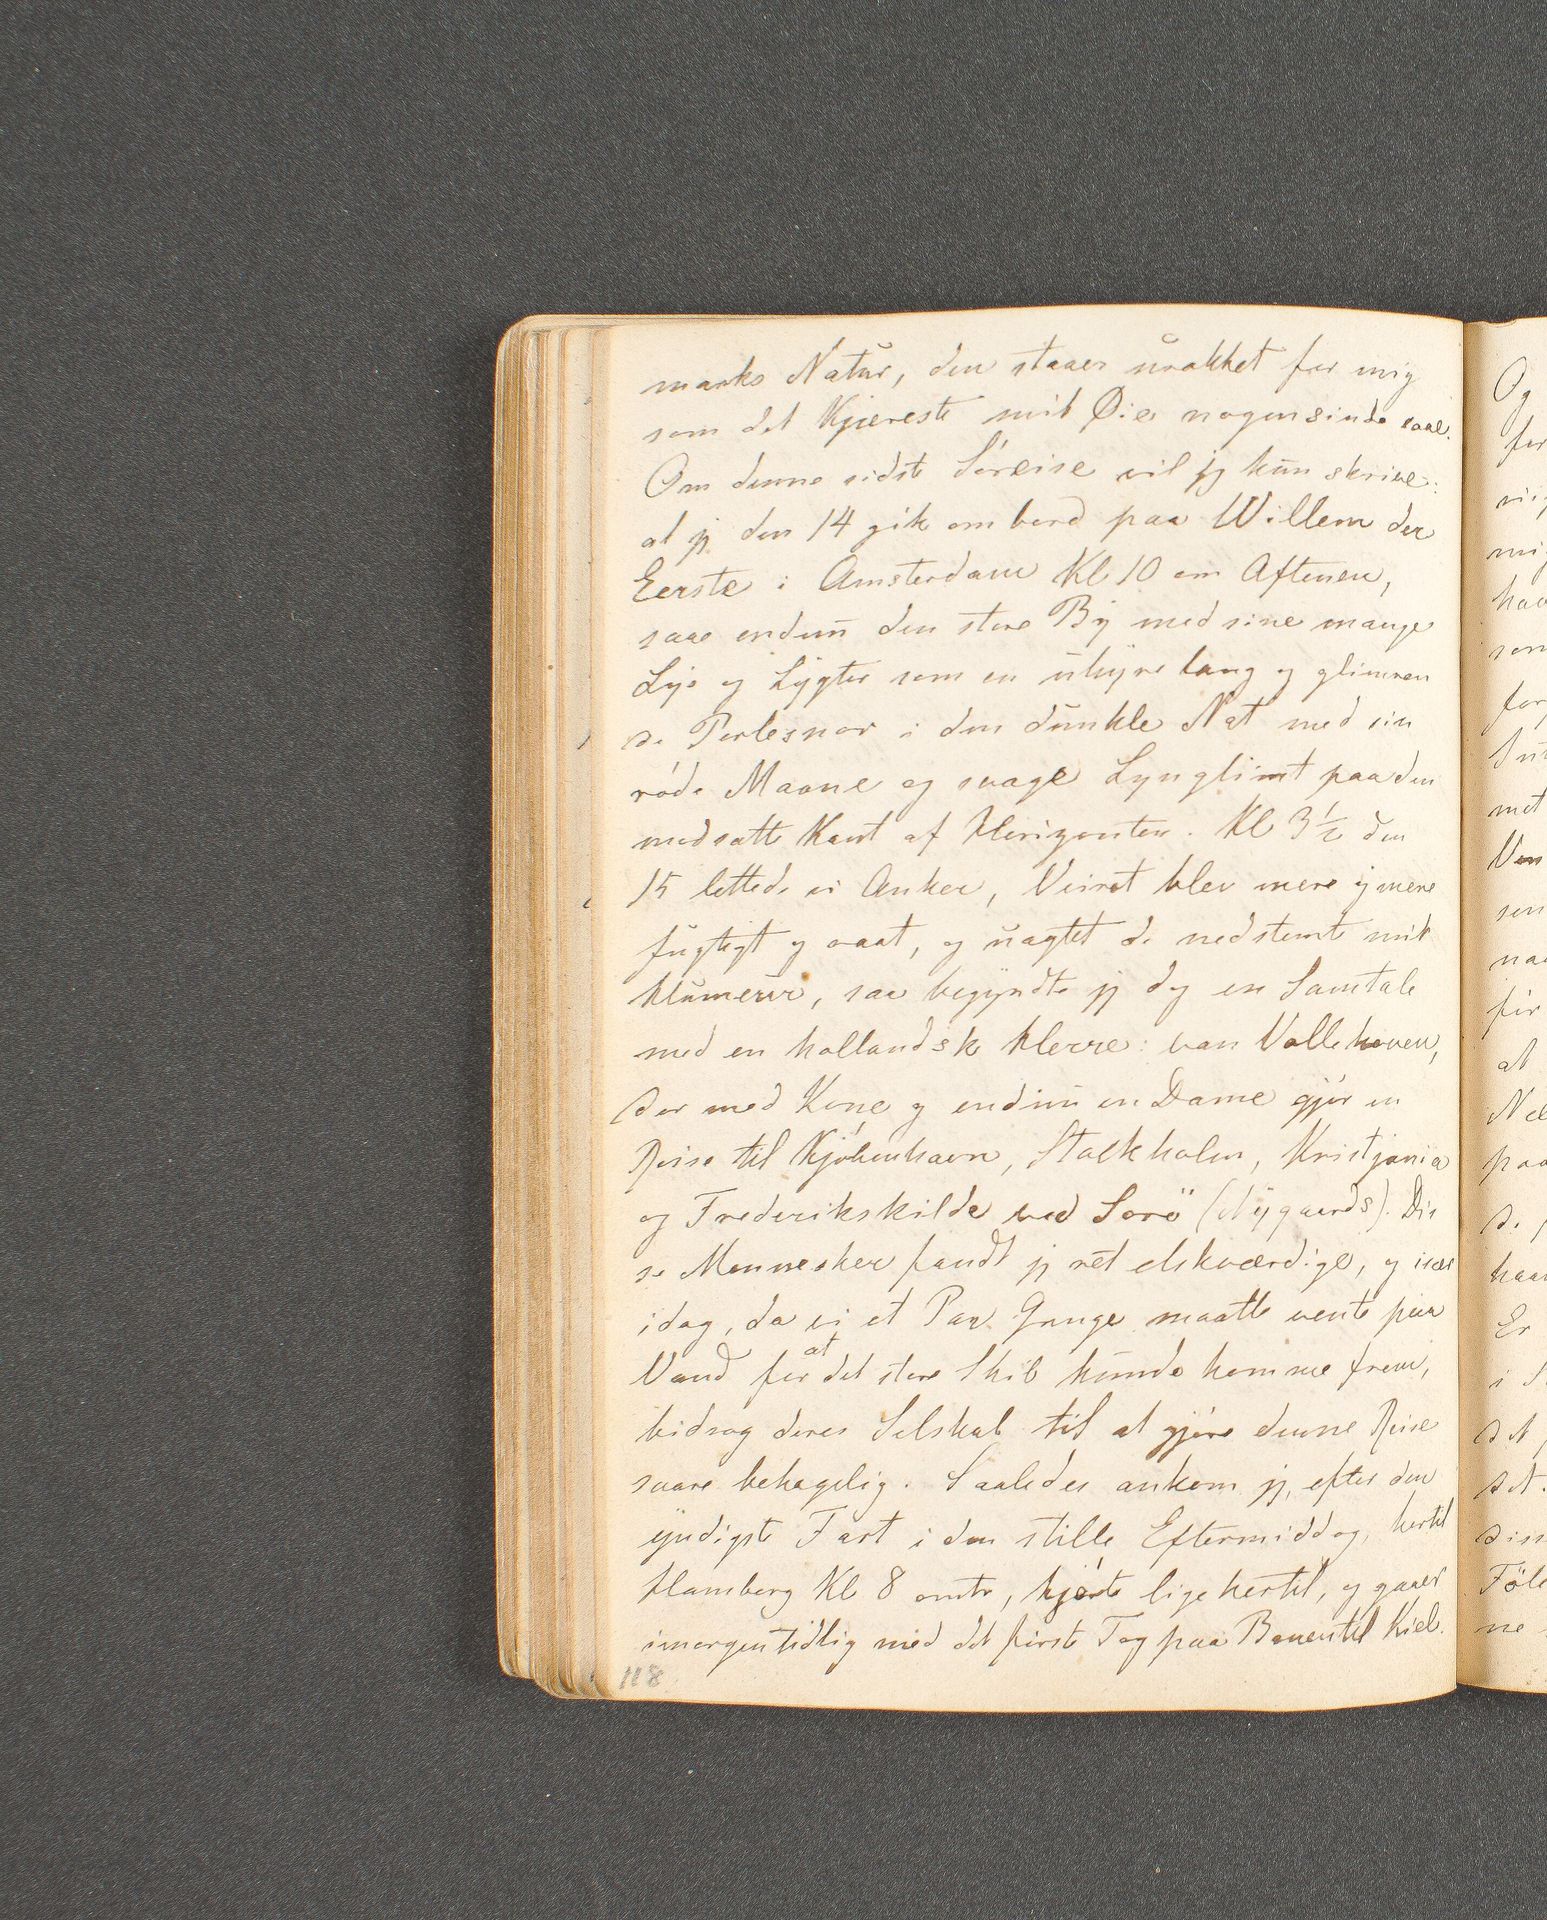 marks Natur, den staaer urokket for mig
som det Kjæreste mit Øie nogensinde saae.
Om denne sidste Søreise vil jeg kun skrive:
at jeg den 14 gik ombord paa Willem der
Eerste i Amsterdam Kl 10 om Aftenen,
saae endnu den store By med sine mange
Lys og Lygter som en uhyre lang og glimren
de Perlesnor i den dunkle Nat med sin
røde Maane og svage Lynglimt paa den
modsatte Kant af Horizonten. Kl 3½ den
15 lettede vi Anker, Veiret blev mere og mere
fugtigt og vaat, og uagtet de nedstemte mit
Humeur, saa begyndte jeg dog en Samtale
med en hollandsk Herre: van Vollehoven,
der med Kone og endnu en Dame gjør en
Reise til Kjøbenhavn, Stockholm, Kristjania
og Frederikskilde ved Sorö (Nygaards). Dis
se Mennesker fandt jeg ret elskværdige, og især
idag, da vi et Par Gange maatte vente paa
Vand for at det store Skib kunde komme frem,
bidrog deres Selskab til at gjøre denne Reise
saare behagelig. Saaledes ankom jeg, efter den
yndigste Fart i den stille Eftermiddag, hertil
Hamborg Kl 8 omtr, kjørte lige hertil, og gaaer
imorgen tidlig med det første Tog paa Banen til Kiel.
118
Og
for
mig
hav
som
for
met
Ven
som
naa
for
at
paa
haa
Er
det
det
diss
Föl
ne